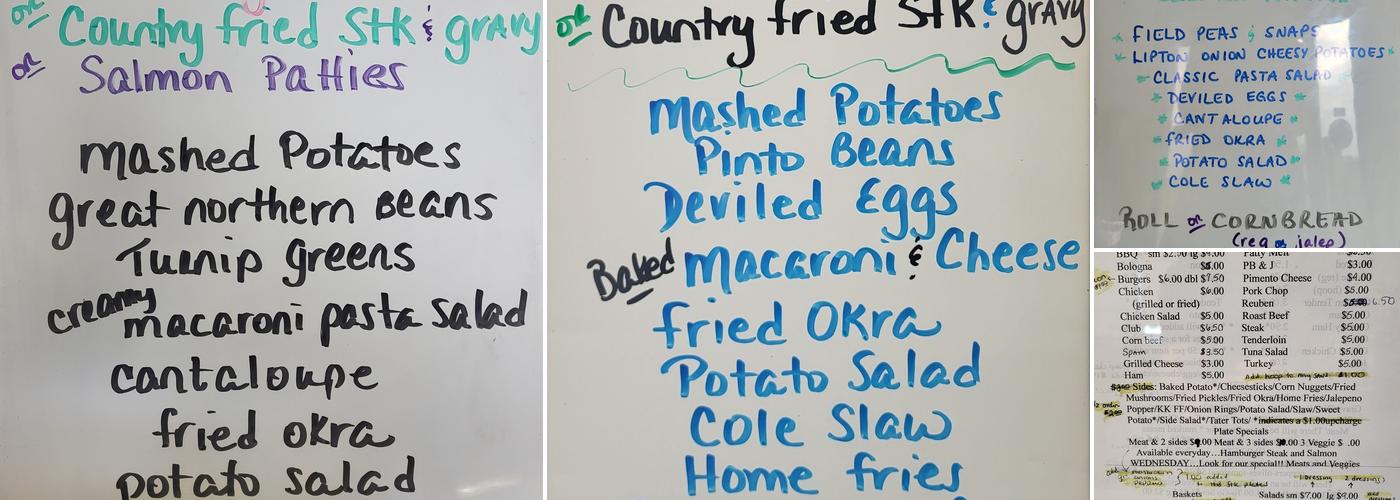 or Country fried Stk & gravy
or Salmon Patties
mashed Potatoes
great northern Beans
Turnip greens
creamy macaroni pasta salad
cantaloupe
fried okra
potato salad
or Country fried Stk & gravy
mashed Potatoes
Pinto Beans
Deviled Eggs
Baked macaroni & Cheese
fried Okra
Potato Salad
Cole Slaw
Home fries
FIELD PEAS & SNAPS
LIPTON ONION CHEESY POTATOES
CLASSIC PASTA SALAD
DEVILED EGGS
CANTALOUPE
FRIED OKRA
POTATO SALAD
COLE SLAW
ROLL or CORNBREAD
(reg or jalep)
BBQ sm $2.50 lg $4.00 Patty Melt
Bologna $5.00 PB & J $3.00
Burgers $6.00 dbl $7.50 Pimento Cheese $4.00
Chicken $6.00 Pork Chop $5.00
(grilled or fried) Reuben 6.50
Chicken Salad $5.00 Roast Beef $5.00
Club $6.50 Steak $5.00
Corn beef $5.00 Tenderloin $5.00
Spam $3.50 Tuna Salad $5.00
Grilled Cheese $3.00 Turkey $5.00
Ham $5.00 $1.00
Sides: Baked Potato*/Cheesesticks/Corn Nuggets/Fried
Mushrooms/Fried Pickles/Fried Okra/Home Fries/Jalepeno
Popper/KK FF/Onion Rings/Potato Salad/Slaw/Sweet
Potato*/Side Salad*/Tater Tots/ *indicates a $1.00upcharge
Plate Specials
Meat & 2 sides $ .00 Meat & 3 sides $ .00 3 Veggie $ .00
Available everyday...Hamburger Steak and Salmon
WEDNESDAY...Look for our special!! Meats and Veggies
Baskets Salads sm $7.00 lg $9.00